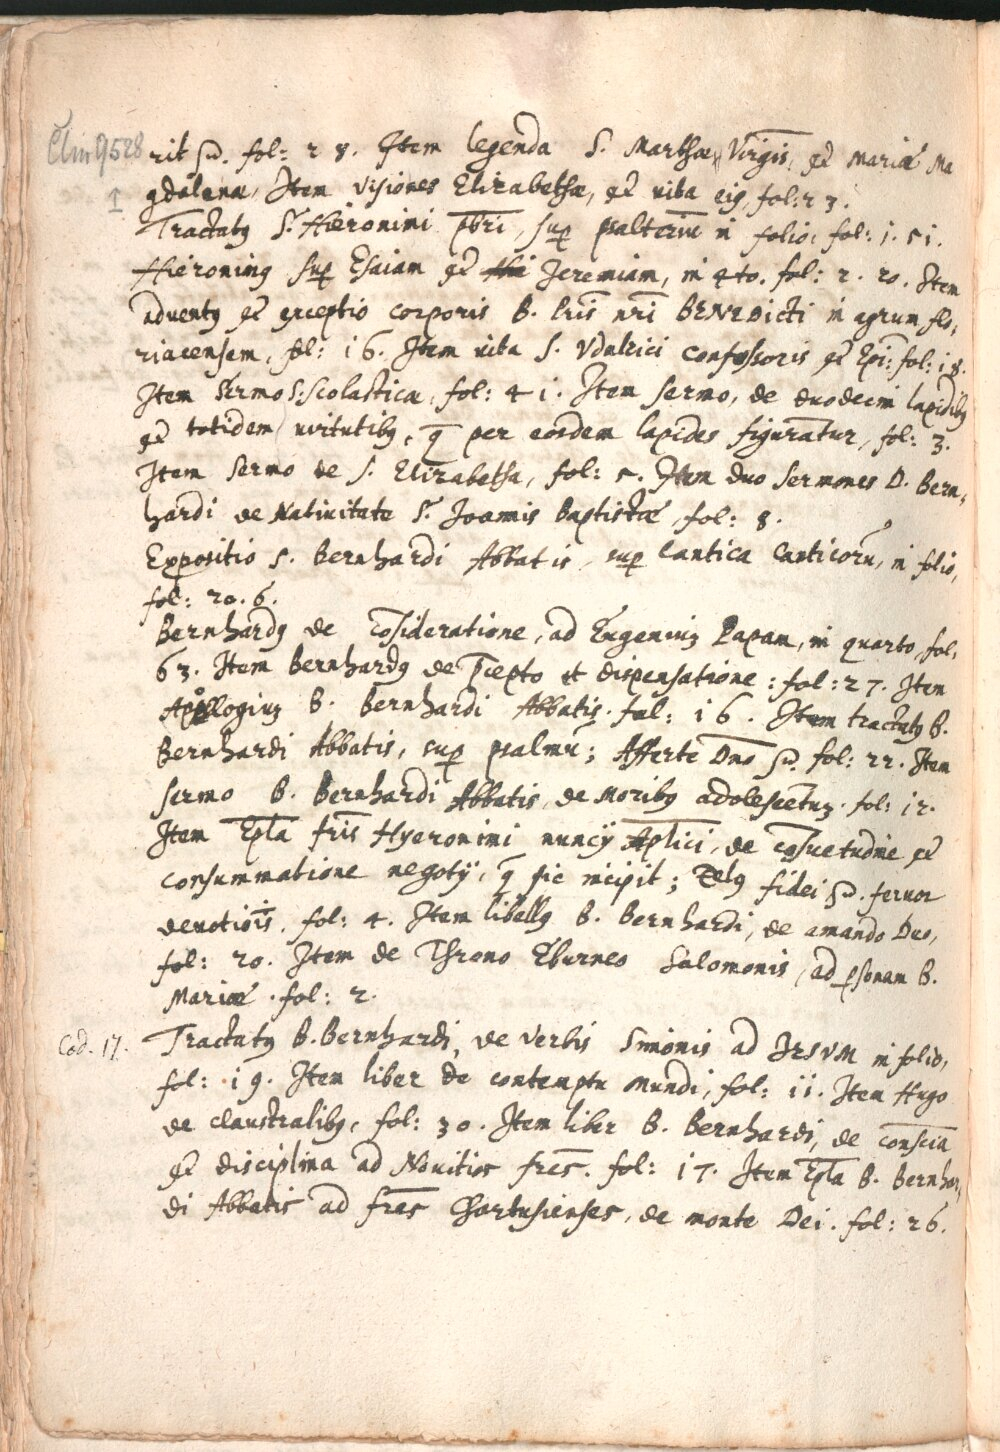 Clm 9528
rit etc. fol: 28. Item legenda S. Marthæ Virgis, et Mariæ Ma
gdalenæ, Item visiones Elizabethæ, et vita eiq, fol: 23.
Tractatq S. Hieronimi pbri, sup psalteriũ in folio: fol: 1.51.
Hieronimq sup Esaiam et Jeremiam, in 4to. fol: 2.20. Item
adventq et exceptio corporis B. Pris nri BENEDicti in agrum flo,
riacensem, fol: 16. Item vita S. Vdalrici confessoris et Epi: fol: 18.
Item Sermo S: Scolasticæ, fol: 41. Item sermo, de duodecim lapidibq
et totidem virtutibq, q per eosdem lapides figuratur, fol: 3.
Item Sermo de S. Elizabetha, fol: 5. Item duo sermones D. Bern,
hardi de Nativitate S. Joannis Baptistæ, fol: 8.
Expositio S. Bernhardi Abbatis, sup Cantica Canticorũ, in folio,
fol: 20.6.
Bernhardq de cõsideratione, ad Eugeniuz Papam, in quarto, fol:
63. Item Bernhardq de pcepto et dispensatione: fol: 27. Item
Apollogiuz B. Bernhardi Abbatis. fol: 16. Item tractatq B.
Bernhardi Abbatis, sup psalmũ; Afferte Dno etc. fol: 22. Item
sermo B. Bernhardi Abbatis, de Moribq adolescẽtuz. fol: 12.
Item Epla fris Hyeronimi nuncÿ Aplici, de cõsuetudine et
consummatione negotÿ, q sic incipit; Zelq fidei etc. fervor
devotiõis, fol: 4. Item libellq B. Bernhardi, de amando Deo,
fol: 20. Item de Throno Eburneo Salomonis, ad psonam B.
Mariæ. fol: 2.
Cod. 17. Tractatq B. Bernhardi, de verbis Simonis ad JESVM in folio,
fol: 19. Item liber de contemptu Mundi, fol: 11. Item Hugo
de claustralibq, fol: 30. Item liber B. Bernhardi, de conscia
et disciplina ad Novitios fres. fol: 17. Item Epla B. Bernhar,
di Abbatis ad fres Chartusienses, de monte Dei. fol: 26.